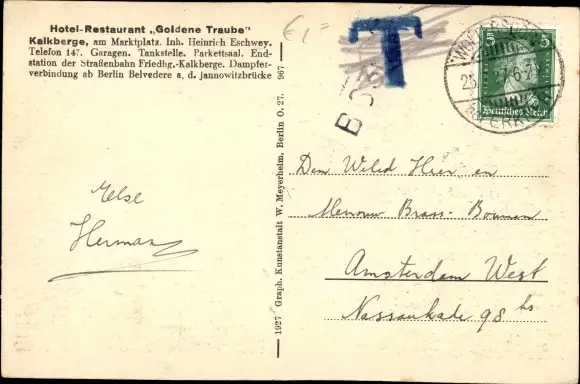 Hotel-Restaurant „Goldene Traube"
Kalkberge, am Marktplatz. Inh. Heinrich Eschwey.
Telefon 147. Garagen. Tankstelle. Parkettsaal. End-
station der Straßenbahn Friedhg.-Kalkberge. Dampfer-
verbindung ab Berlin Belvedere a. d. Jannowitzbrücke
1927 Graph. Kunstanstalt W. Meyerheim, Berlin O. 27. 967
T
5 5
Deutsches Reich
25
Den Weled Heer en
Mevrouw Brass-Bouman
Amsterdam West
Nassaukade 98 hs
Else
Herman